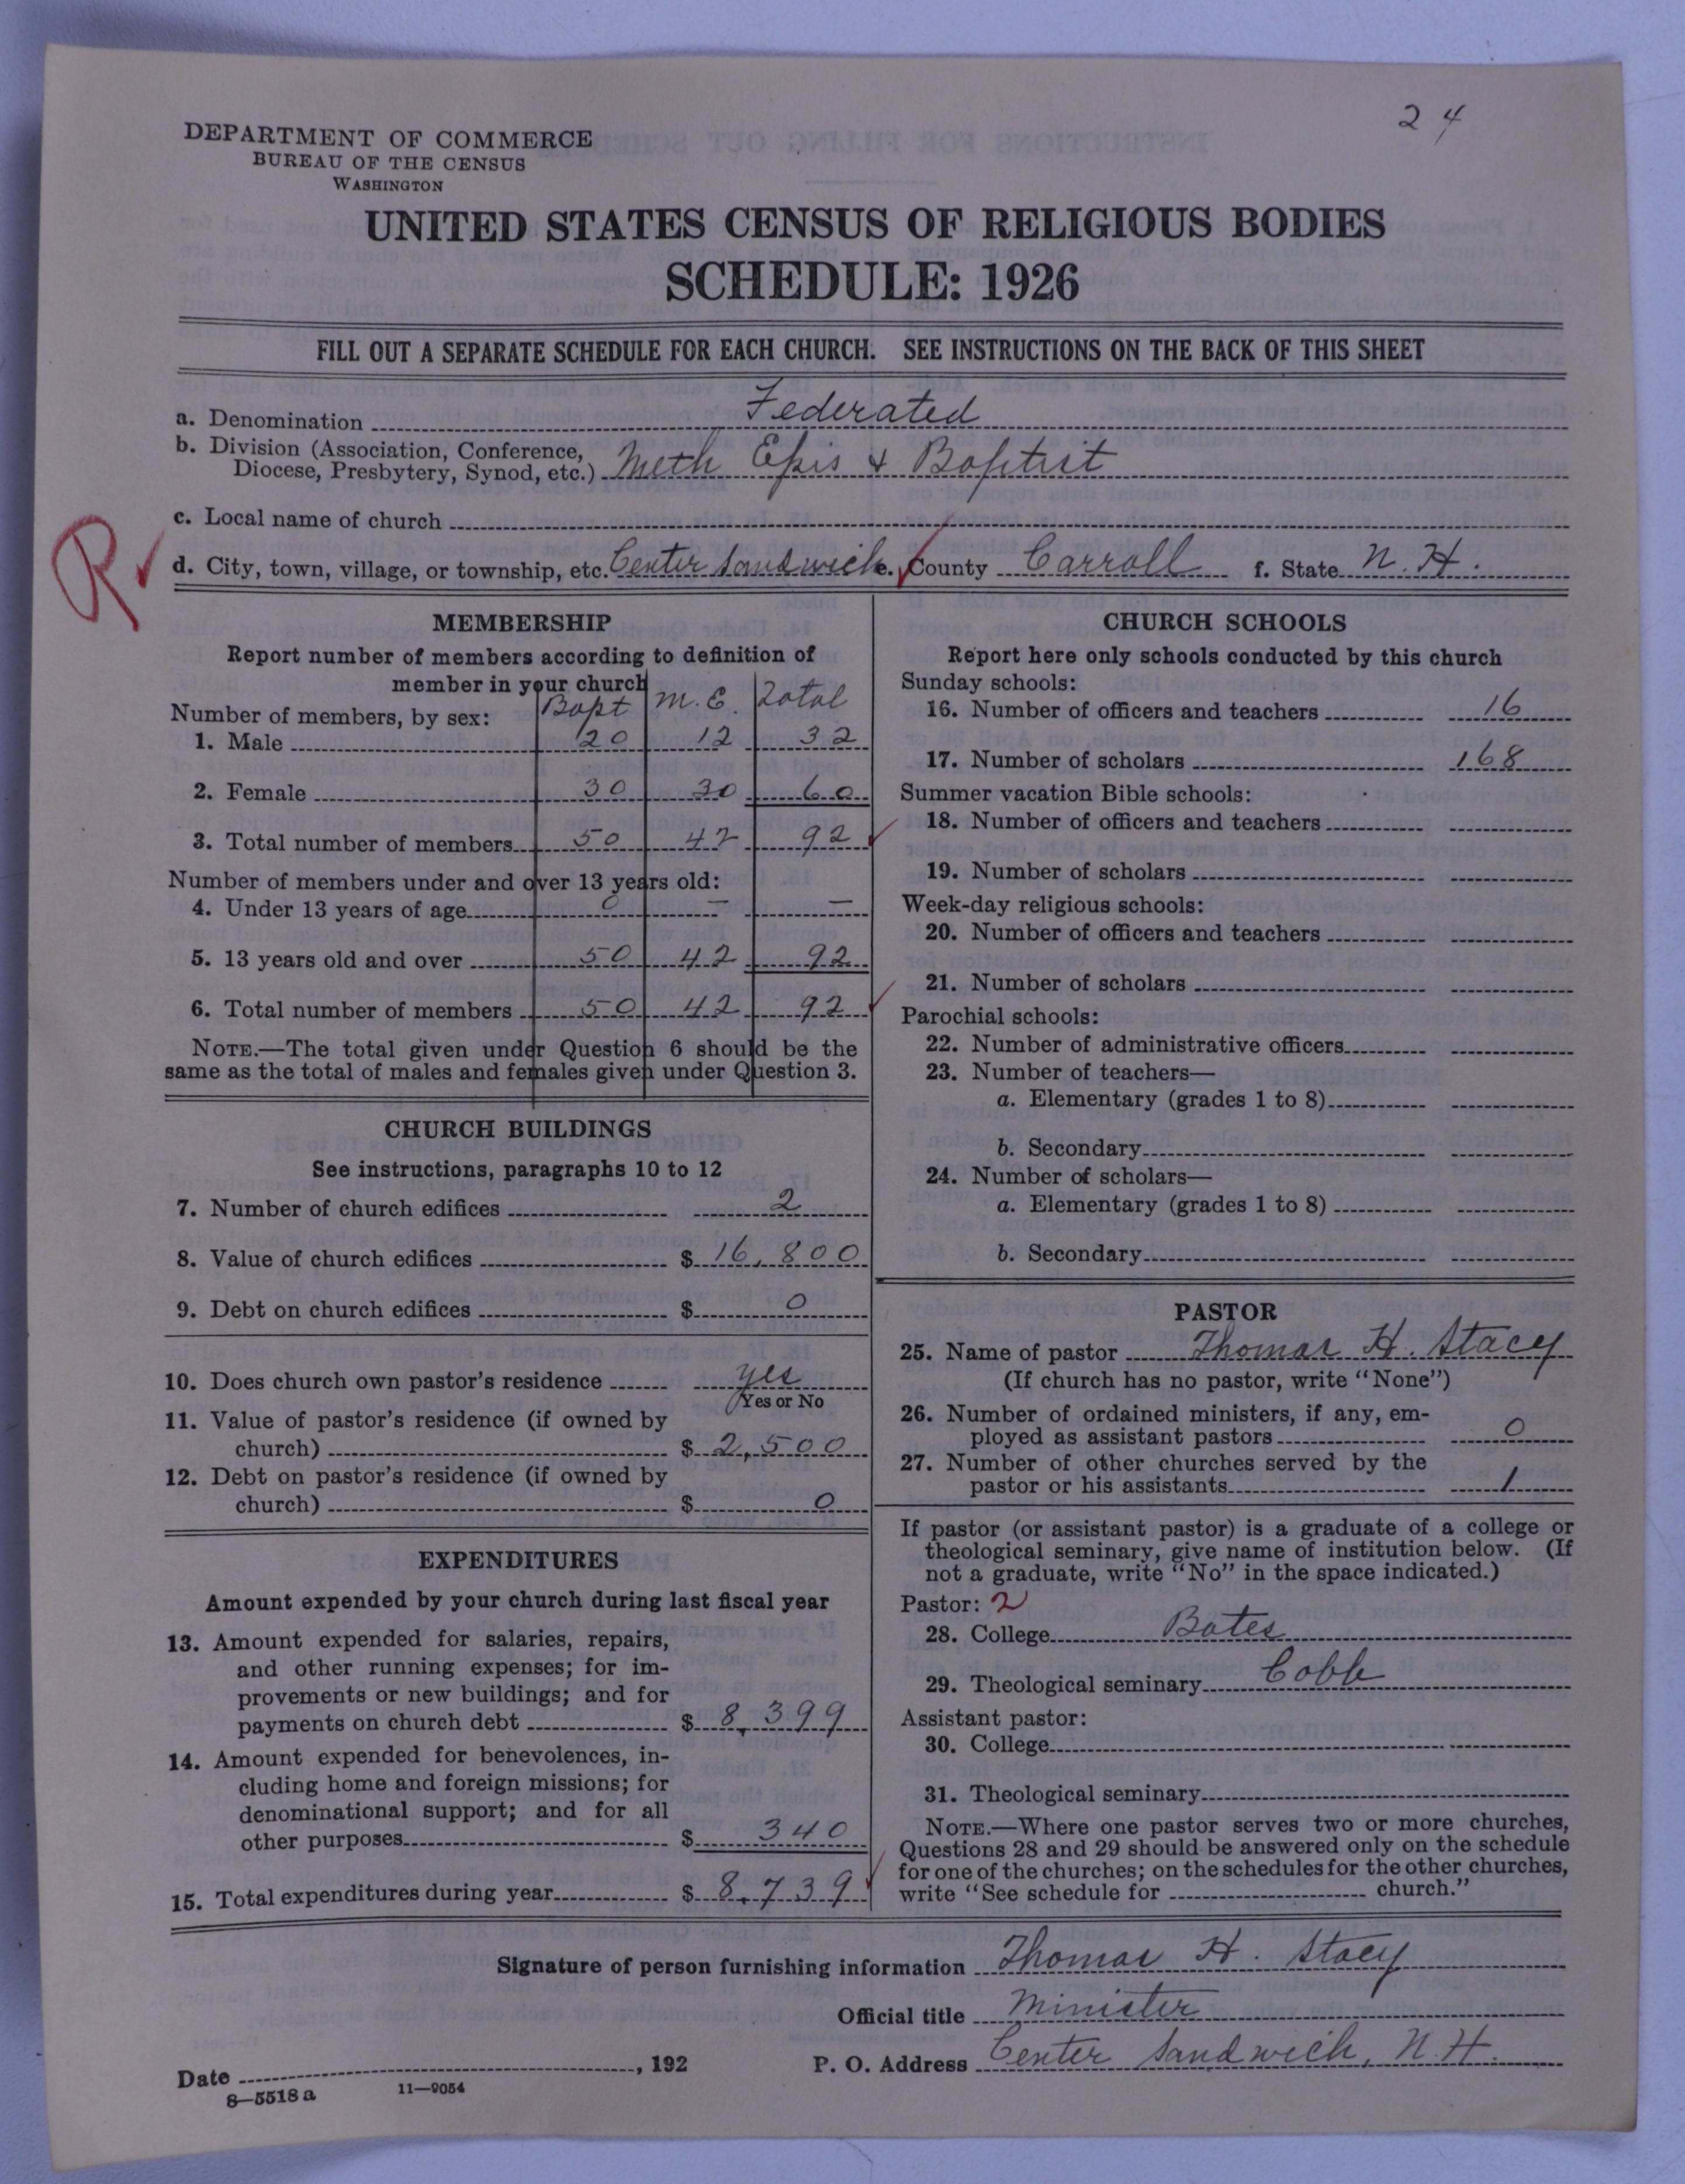 24
DEPARTMENT OF COMMERCE
BUREAU OF THE CENSUS
WASHINGTON
UNITED STATES CENSUS OF RELIGIOUS BODIES
SCHEDULE: 1926
FILL OUT A SEPARATE SCHEDULE FOR EACH CHURCH. SEE INSTRUCTIONS ON THE BACK OF THIS SHEET
a. Denomination Federated
b. Division (Association, Conference,
Diocese, Presbytery, Synod, etc.) Meth Epis & Baptist
c. Local name of church
R
d. City, town, village, or township, etc. Center Sandwich e. County Carroll f. State N. H.
MEMBERSHIP
Report number of members according to definition of
member in your church
Bapt M. E. Total
Number of members, by sex:
1. Male 20 12 32
2. Female 30 30 60
3. Total number of members 50 42 92
Number of members under and over 13 years old:
4. Under 13 years of age 0 — —
5. 13 years old and over 50 42 92
6. Total number of members 50 42 92
NOTE.—The total given under Question 6 should be the
same as the total of males and females given under Question 3.
CHURCH BUILDINGS
See instructions, paragraphs 10 to 12
7. Number of church edifices 2
8. Value of church edifices $ 16,800
9. Debt on church edifices $ 0
10. Does church own pastor's residence yes
Yes or No
11. Value of pastor's residence (if owned by
church) $ 2,500
12. Debt on pastor's residence (if owned by
church) $ 0
EXPENDITURES
Amount expended by your church during last fiscal year
13. Amount expended for salaries, repairs,
and other running expenses; for im-
provements or new buildings; and for
payments on church debt $ 8,399
14. Amount expended for benevolences, in-
cluding home and foreign missions; for
denominational support; and for all
other purposes $ 340
15. Total expenditures during year $ 8,739
CHURCH SCHOOLS
Report here only schools conducted by this church
Sunday schools:
16. Number of officers and teachers 16
17. Number of scholars 168
Summer vacation Bible schools:
18. Number of officers and teachers
19. Number of scholars
Week-day religious schools:
20. Number of officers and teachers
21. Number of scholars
Parochial schools:
22. Number of administrative officers
23. Number of teachers—
a. Elementary (grades 1 to 8)
b. Secondary
24. Number of scholars—
a. Elementary (grades 1 to 8)
b. Secondary
PASTOR
25. Name of pastor Thomas H. Stacy
(If church has no pastor, write "None")
26. Number of ordained ministers, if any, em-
ployed as assistant pastors 0
27. Number of other churches served by the
pastor or his assistants 1
If pastor (or assistant pastor) is a graduate of a college or
theological seminary, give name of institution below. (If
not a graduate, write "No" in the space indicated.)
Pastor: 2
28. College Bates
29. Theological seminary Cobb
Assistant pastor:
30. College
31. Theological seminary
NOTE.—Where one pastor serves two or more churches,
Questions 28 and 29 should be answered only on the schedule
for one of the churches; on the schedules for the other churches,
write "See schedule for church."
Signature of person furnishing information Thomas H. Stacy
Official title Minister
Date , 192 P. O. Address Center Sandwich, N. H.
8—5518 a 11—9054